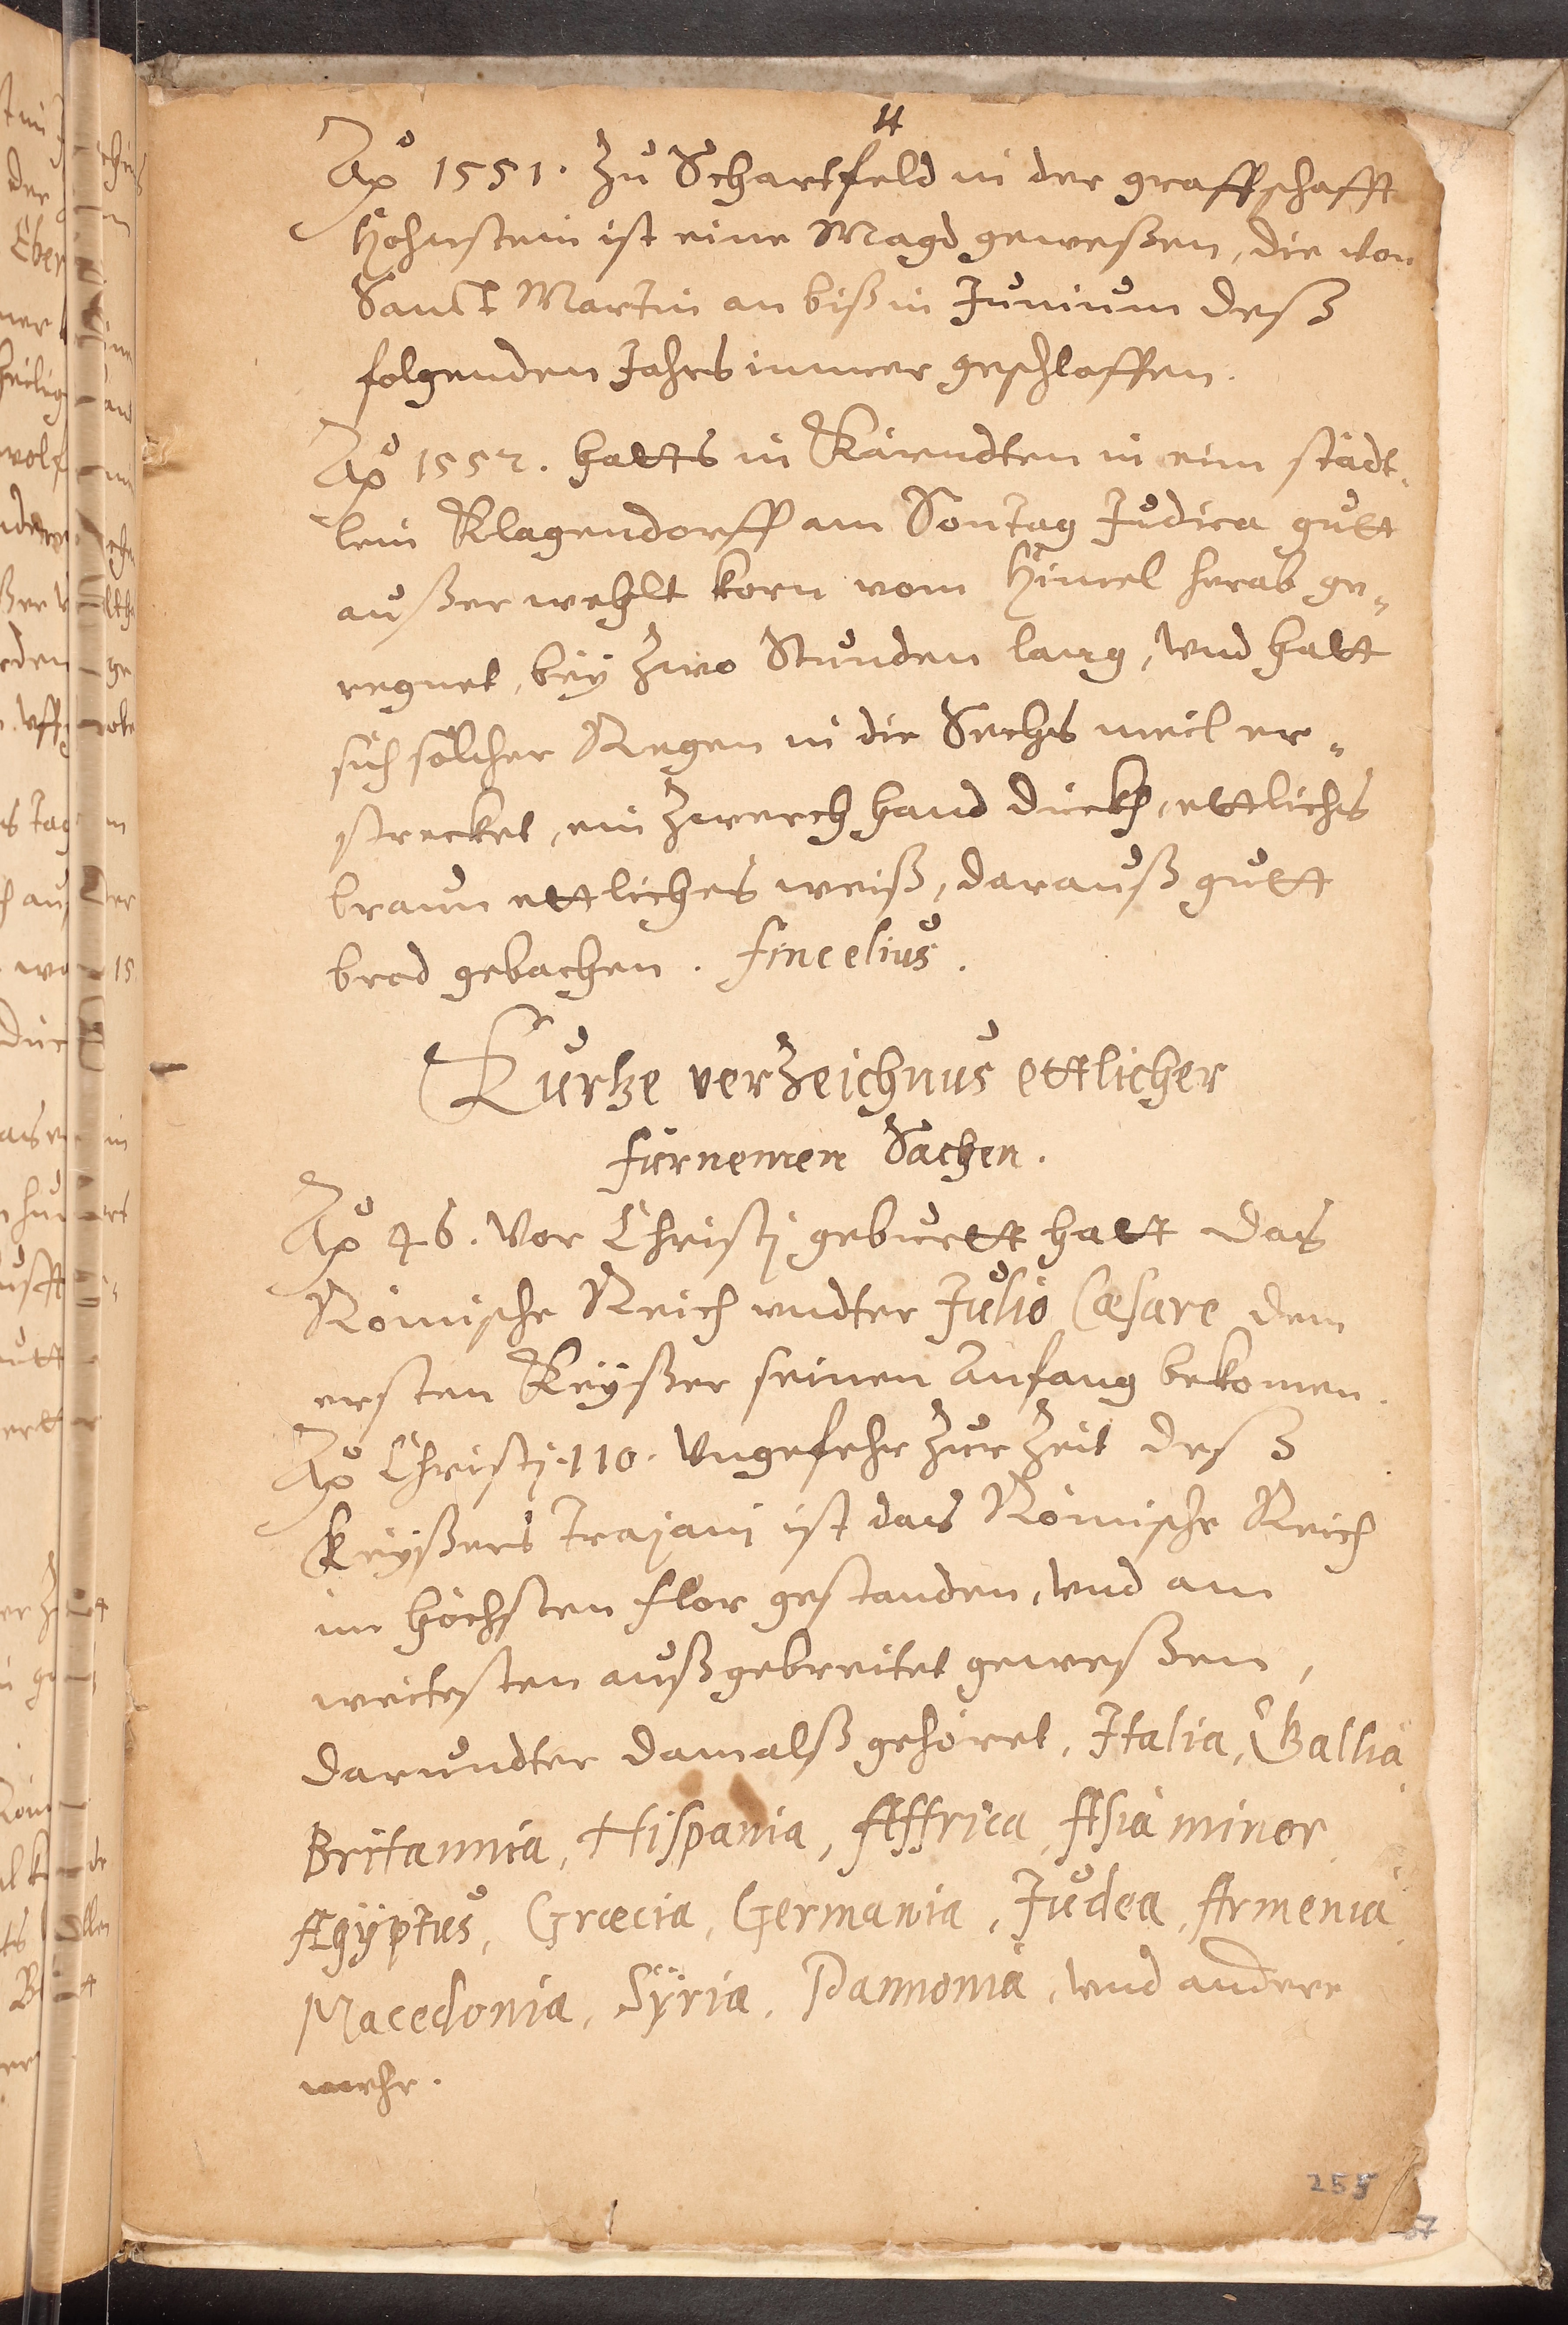 Aō 1551. Zu Schartfeld in der graffschafft
Hohnstein ist eine Magd geweßen, die von
Sanct Martin an biß in Junium deß
folgenden Jahrs immer geschlaffen.
Aō 1552. hatts in Kärndten in eim städt„
lein Klagendorff am Sontag Judica gutt
außerwehlt korn vom Himel herab ge„
regnet, bey Zwo Stunden lang, und hatt
sich solcher Regen in die Sechs meil er„
strecket, ein Zwerch hand dickh, ettlichs
braun ettliches weiß, darauß gutt
brod gebachen. Fincelius.
Kurtze verZeichnus ettlicher
fürnemen Sachen.
Aō 46. Vor Christj geburtt hatt das
Römische Reich vndter Julio Cæsare dem
ersten Keyßer seinen Anfang bekomen.
Aō Christj. 110. Vngefehr Zur Zeit deß
Keyßers Trajanj ist das Römische Reich
im höchsten flor gestanden, vnd am
weitesten außgebreitet geweßen,
darundter damalß gehöret, Italia, Gallia
Britannia, Hispania, Affrica, Asia minor
Ægÿptus, Græcia, Germania, Judea, Armenia
Macedonia, Sÿria, Pannonia, vnd andere
mehr.
255